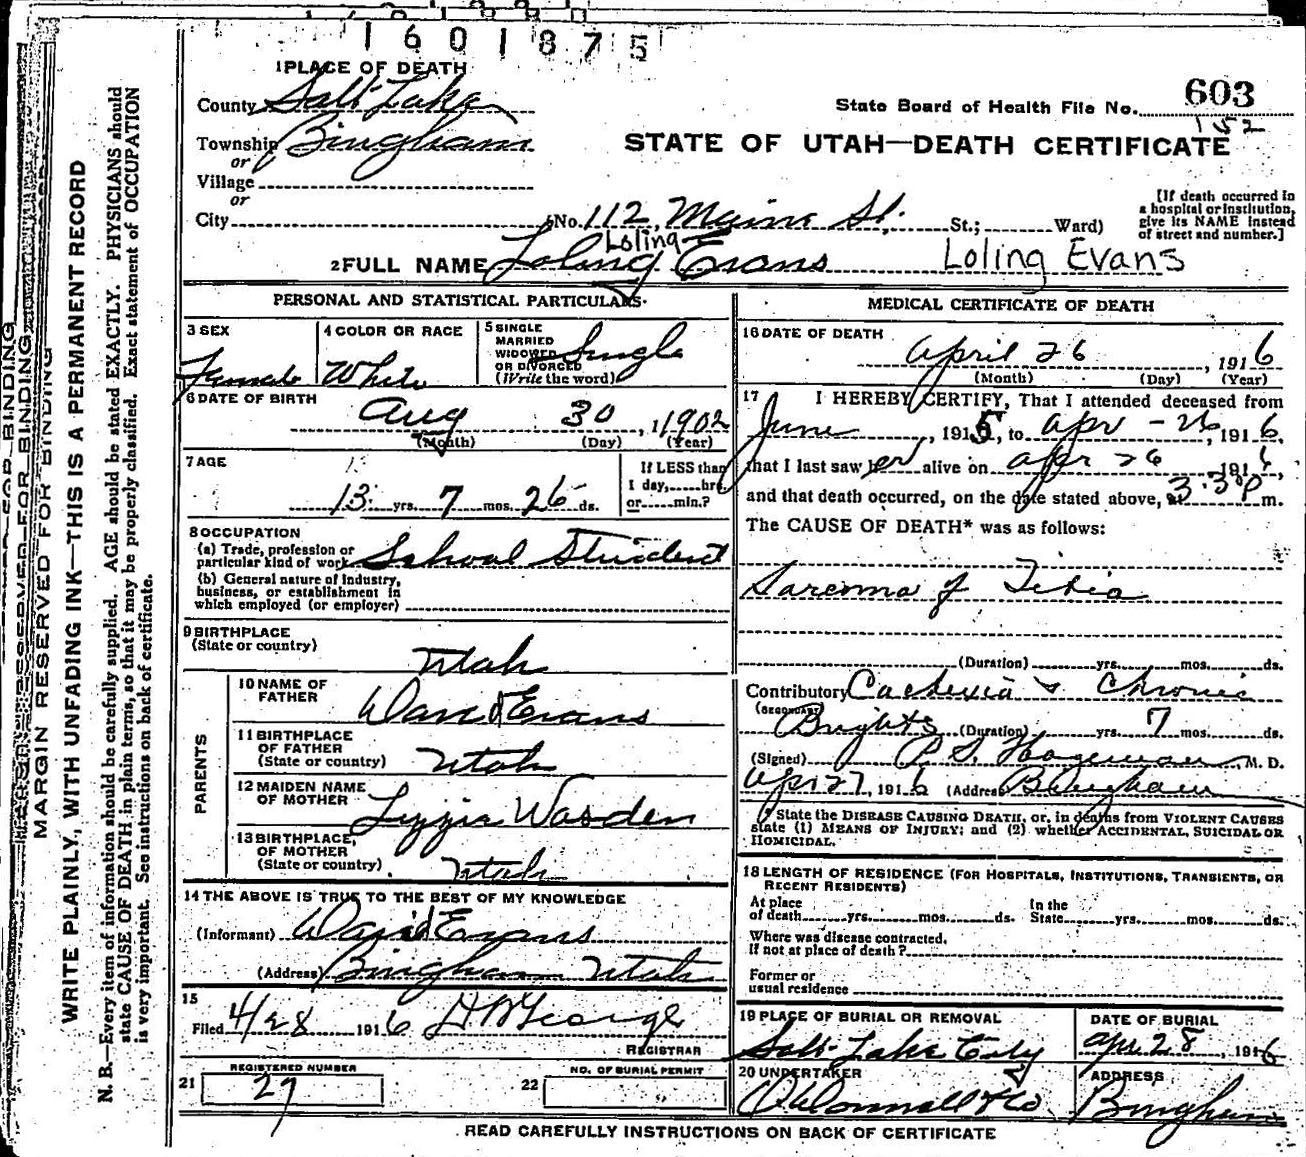 1601875
1 PLACE OF DEATH
County Salt Lake
State Board of Health File No. 603
152
Township Bingham
STATE OF UTAH—DEATH CERTIFICATE
or
Village
or
City No. 112 Maine St. St.; Ward)
[If death occurred in a hospital or institution, give its NAME instead of street and number.]
Loling
2 FULL NAME Loling Evans Loling Evans
PERSONAL AND STATISTICAL PARTICULARS
3 SEX Female
4 COLOR OR RACE White
5 SINGLE MARRIED WIDOWED OR DIVORCED (Write the word) Single
6 DATE OF BIRTH
Aug 30, 1902
(Month) (Day) (Year)
7 AGE
13
13 yrs. 7 mos. 26 ds.
If LESS than 1 day, hrs. or min.?
8 OCCUPATION
(a) Trade, profession or particular kind of work School Student
(b) General nature of industry, business, or establishment in which employed (or employer)
9 BIRTHPLACE (State or country)
Utah
PARENTS
10 NAME OF FATHER David Evans
11 BIRTHPLACE OF FATHER (State or country) Utah
12 MAIDEN NAME OF MOTHER Lizzie Wasden
13 BIRTHPLACE, OF MOTHER (State or country) Utah
14 THE ABOVE IS TRUE TO THE BEST OF MY KNOWLEDGE
(Informant) David Evans
(Address) Bingham Utah
15
Filed 4/28 1916 H B George
REGISTRAR
21 REGISTERED NUMBER 27
22 NO. OF BURIAL PERMIT
MEDICAL CERTIFICATE OF DEATH
16 DATE OF DEATH
April 26, 1916
(Month) (Day) (Year)
17 I HEREBY CERTIFY, That I attended deceased from
June, 1915, to Apr - 26, 1916,
that I last saw her alive on Apr 26 1916,
and that death occurred, on the date stated above, at 3:30 P m.
The CAUSE OF DEATH* was as follows:
Sarcoma of Tibia
(Duration) yrs. mos. ds.
Contributory Cachexia & Chronic
(SECONDARY) Brights (Duration) yrs. 7 mos. ds.
(Signed) P. S. Hageman, M. D.
Apr 27, 1916 (Address) Bingham
State the DISEASE CAUSING DEATH, or, in deaths from VIOLENT CAUSES
state (1) MEANS OF INJURY; and (2) whether ACCIDENTAL, SUICIDAL OR
HOMICIDAL.
18 LENGTH OF RESIDENCE (FOR HOSPITALS, INSTITUTIONS, TRANSIENTS, OR
RECENT RESIDENTS)
At place of death yrs. mos. ds. In the State yrs. mos. ds.
Where was disease contracted,
If not at place of death?
Former or
usual residence
19 PLACE OF BURIAL OR REMOVAL Salt Lake City
DATE OF BURIAL Apr 28, 1916
20 UNDERTAKER O'Donnell & Co
ADDRESS Bingham
READ CAREFULLY INSTRUCTIONS ON BACK OF CERTIFICATE
MARGIN RESERVED FOR BINDING
WRITE PLAINLY, WITH UNFADING INK—THIS IS A PERMANENT RECORD
N. B.—Every item of information should be carefully supplied. AGE should be stated EXACTLY. PHYSICIANS should
state CAUSE OF DEATH in plain terms, so that it may be properly classified. Exact statement of OCCUPATION
is very important. See instructions on back of certificate.